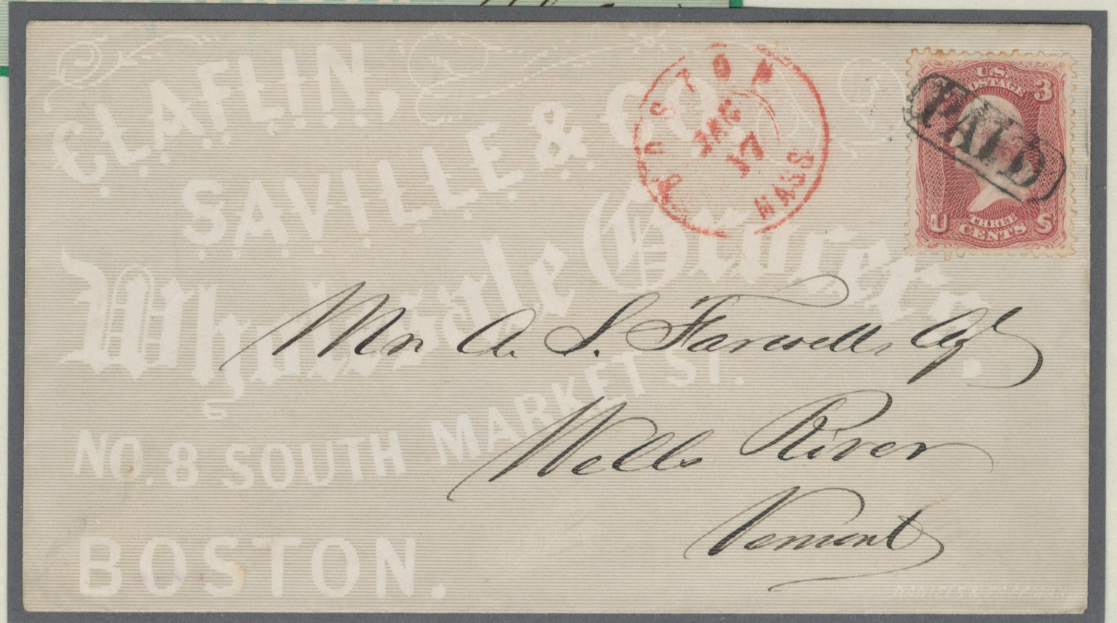 CLAFLIN,
SAVILLE & CO.
Wholesale Grocers.
NO. 8 SOUTH MARKET ST.
BOSTON.
BOSTON
DEC
17
MASS
U.S. POSTAGE 3
THREE CENTS
U S
PAID
Mr A. S. Farwell, Agt
Wells River
Vermont